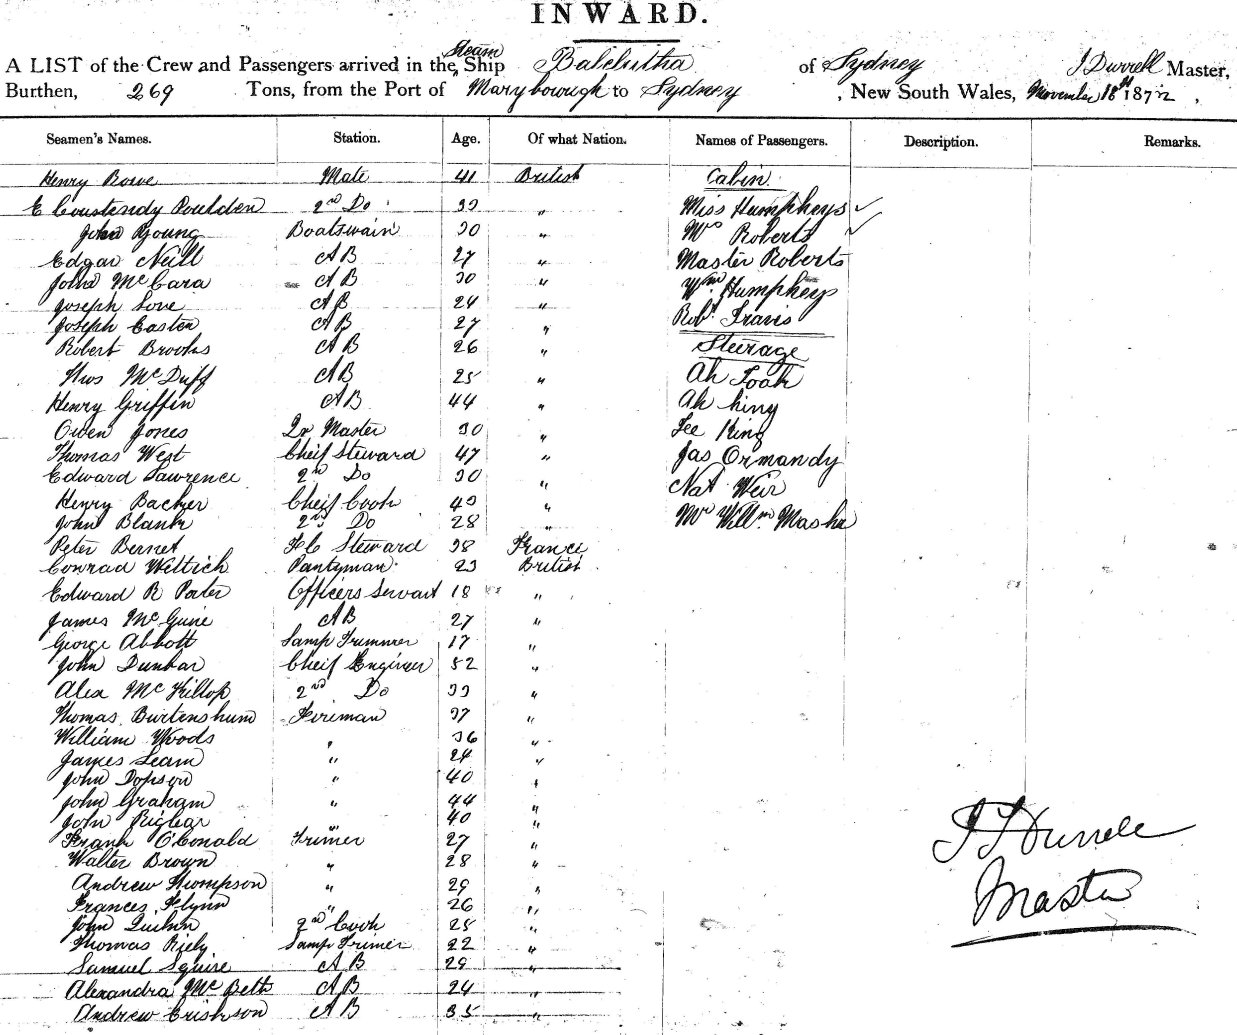 INWARD.
Steam
A LIST of the Crew and Passengers arrived in the Ship Balclutha of Sydney J Durrell Master,
Burthen, 269 Tons, from the Port of Maryborough to Sydney , New South Wales, November 18th 1872 ,
Seamen's Names. Station. Age. Of what Nation. Names of Passengers. Description. Remarks.
Henry Rowe Mate 41 British Cabin
E Coustendy Poulden 2nd Do 33 " Miss Humpheys
John Young Boatswain 30 " Mrs Roberts
Edgar Neill AB 27 " Master Roberts
John McCara AB 30 " Wm Humpheys
Joseph Love AB 24 " Robt Travis
Joseph Easten AB 27 "
Robert Brooks AB 26 " Steerage
Thos McDuff AB 25 " Ah Foah
Henry Griffin AB 44 " Ah hing
Owen Jones Qr Master 30 " Lee King
Thomas West Cheif Steward 47 " Jas Ormandy
Edward Lawrence 2nd Do 30 " Nat Weir
Henry Backer Cheif Cook 43 " Mr Willm Masha
John Blank 2nd Do 28 "
Peter Bernet F.C Steward 38 France
Conrad Wettich Pantyman 23 British
Edward R Porter Officers Servant 18 "
James McGuire AB 27 "
George Abbott Lamp Trimmer 17 "
John Dunbar Cheif Engineer 52 "
Alex McKillop 2nd Do 33 "
Thomas Burtenshum Fireman 37 "
William Woods " 36 "
James Leam " 24 "
John Dopson " 40 "
John Graham " 44 "
John Riglear " 40 "
Frank O'Conald Trimer 27 "
Walter Brown " 28 "
Andrew Thompson " 29 "
Frances Flynn " 26 "
John Quinn 2nd Cook 25 "
Thomas Riely Lamp Trimer 22 "
Samuel Squire AB 29 "
Alexandra McBeth AB 24 "
Andrew Erickson AB 35 "
J Durrell
Master